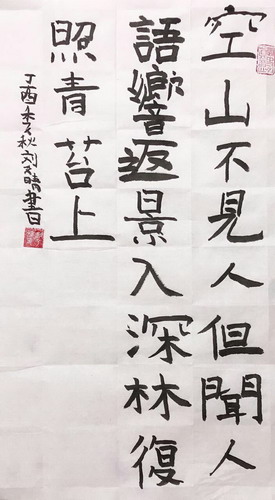 空山不見人但聞人
語響返景入深林復
照青苔上
丁酉季秋刘天晴書